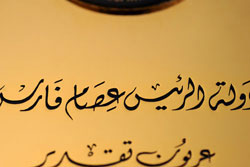 دولة الرئيس عصام فارس
عربون تقدير